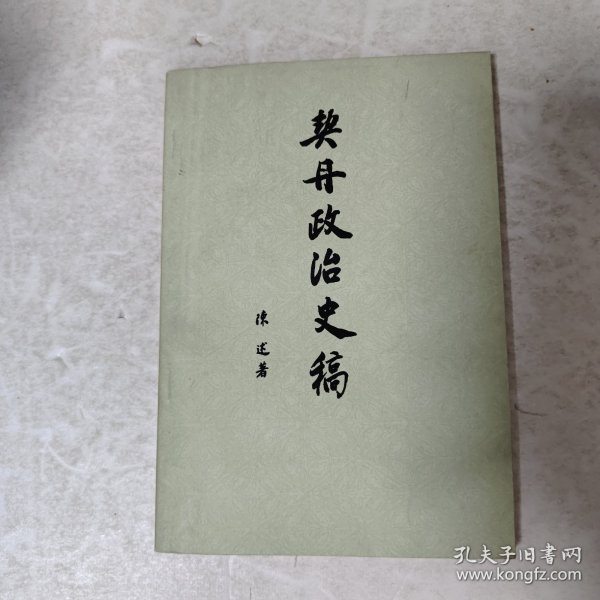 契丹政治史稿
陳述著
孔夫子旧书网
www.kongfz.com